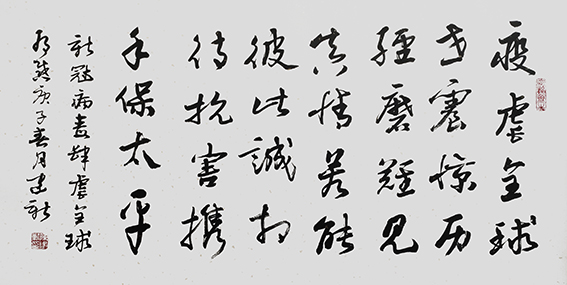 疫虐全球
世震惊历
经磨難见
真情若能
彼此誠相
待抗害携
手保太平
新冠病毒肆虐全球
有感庚子春月建新